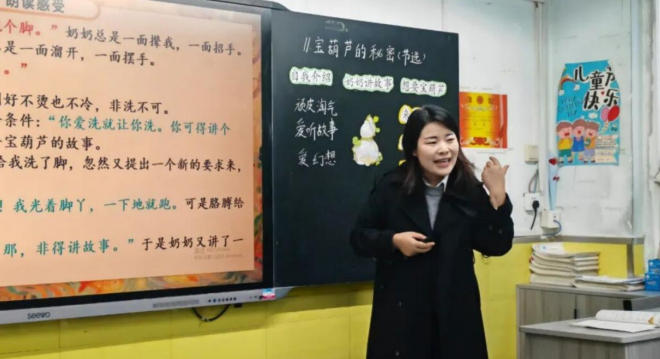 朗读感受
个脚。”奶奶总是一面撵我,一面招手。
是一面溜开,一面摆手。
”
刚好不烫也不冷,非洗不可。
条件:“你爱洗就让你洗。你可得讲个
宝葫芦的故事。
给我洗了脚,忽然又提出一个新的要求来,
!我光着脚丫,一下地就跑。可是胳膊给
那,非得讲故事。”于是奶奶又讲了一
seewo
11宝葫芦的秘密(节选)
自我介绍 奶奶讲故事 想要宝葫芦
顽皮淘气
爱听故事
爱幻想
儿童户
快乐